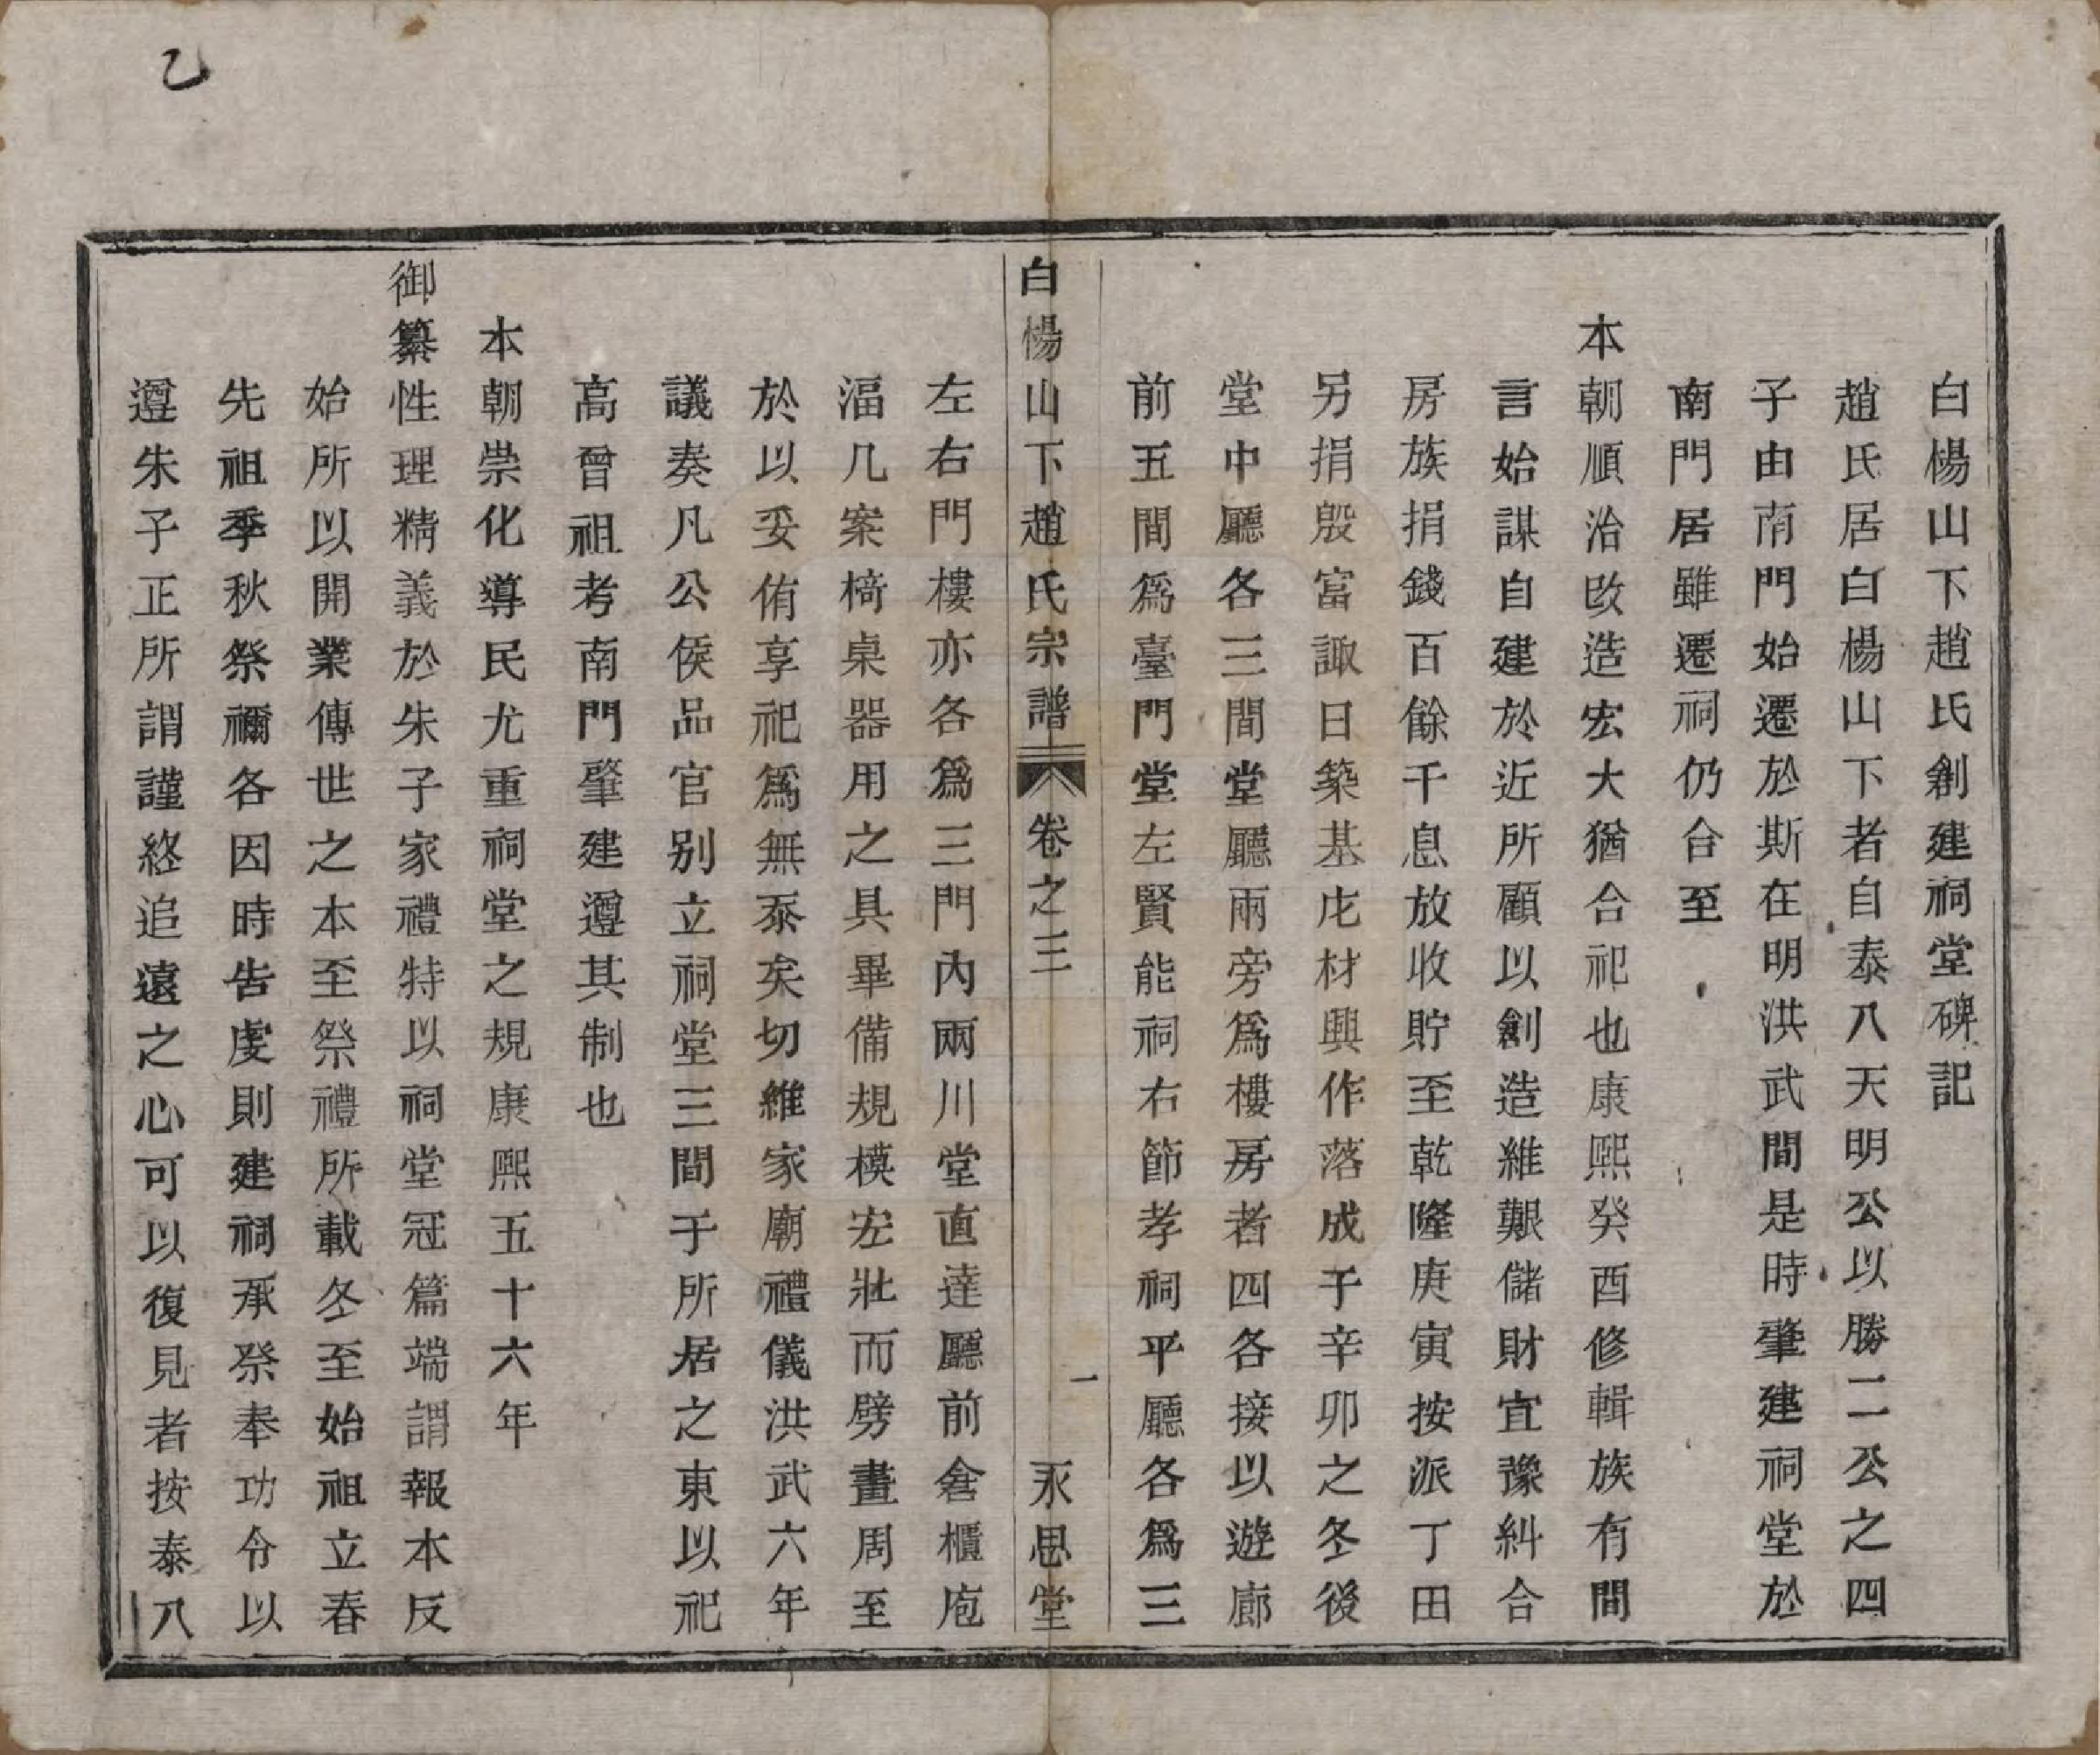 白楊山下趙氏創建祠堂碑記
趙氏居白楊山下者自泰八天明公以勝二公之四
子由南門始遷於斯在明洪武間是時肇建祠堂於
南門居雖遷祠仍合至
本朝順治改造宏大猶合祀也康熙癸酉修輯族有間
言始謀自建於近所顧以創造維艱儲財宜豫糾合
房族捐錢百餘千息放收貯至乾隆庚寅按派丁田
另捐殷富諏日築基庀材興作落成于辛卯之冬後
堂中廳各三間堂廳兩旁爲樓房者四各接以遊廊
前五間爲臺門堂左賢能祠右節孝祠平廳各爲三
白楊山下趙氏宗譜 卷之三 一 永思堂
左右門樓亦各爲三門內兩川堂直達廳前倉櫃庖
湢几案椅桌器用之具畢備規模宏壯而劈畫周至
於以妥侑享祀爲無忝矣切維家廟禮儀洪武六年
議奏凡公侯品官别立祠堂三間于所居之東以祀
高曾祖考南門肇建遵其制也
本朝崇化導民尤重祠堂之規康熙五十六年
御纂性理精義於朱子家禮特以祠堂冠篇端謂報本反
始所以開業傳世之本至祭禮所載冬至始祖立春
先祖季秋祭禰各因時告虔則建祠承祭奉功令以
遵朱子正所謂謹終追遠之心可以復見者按泰八
乙